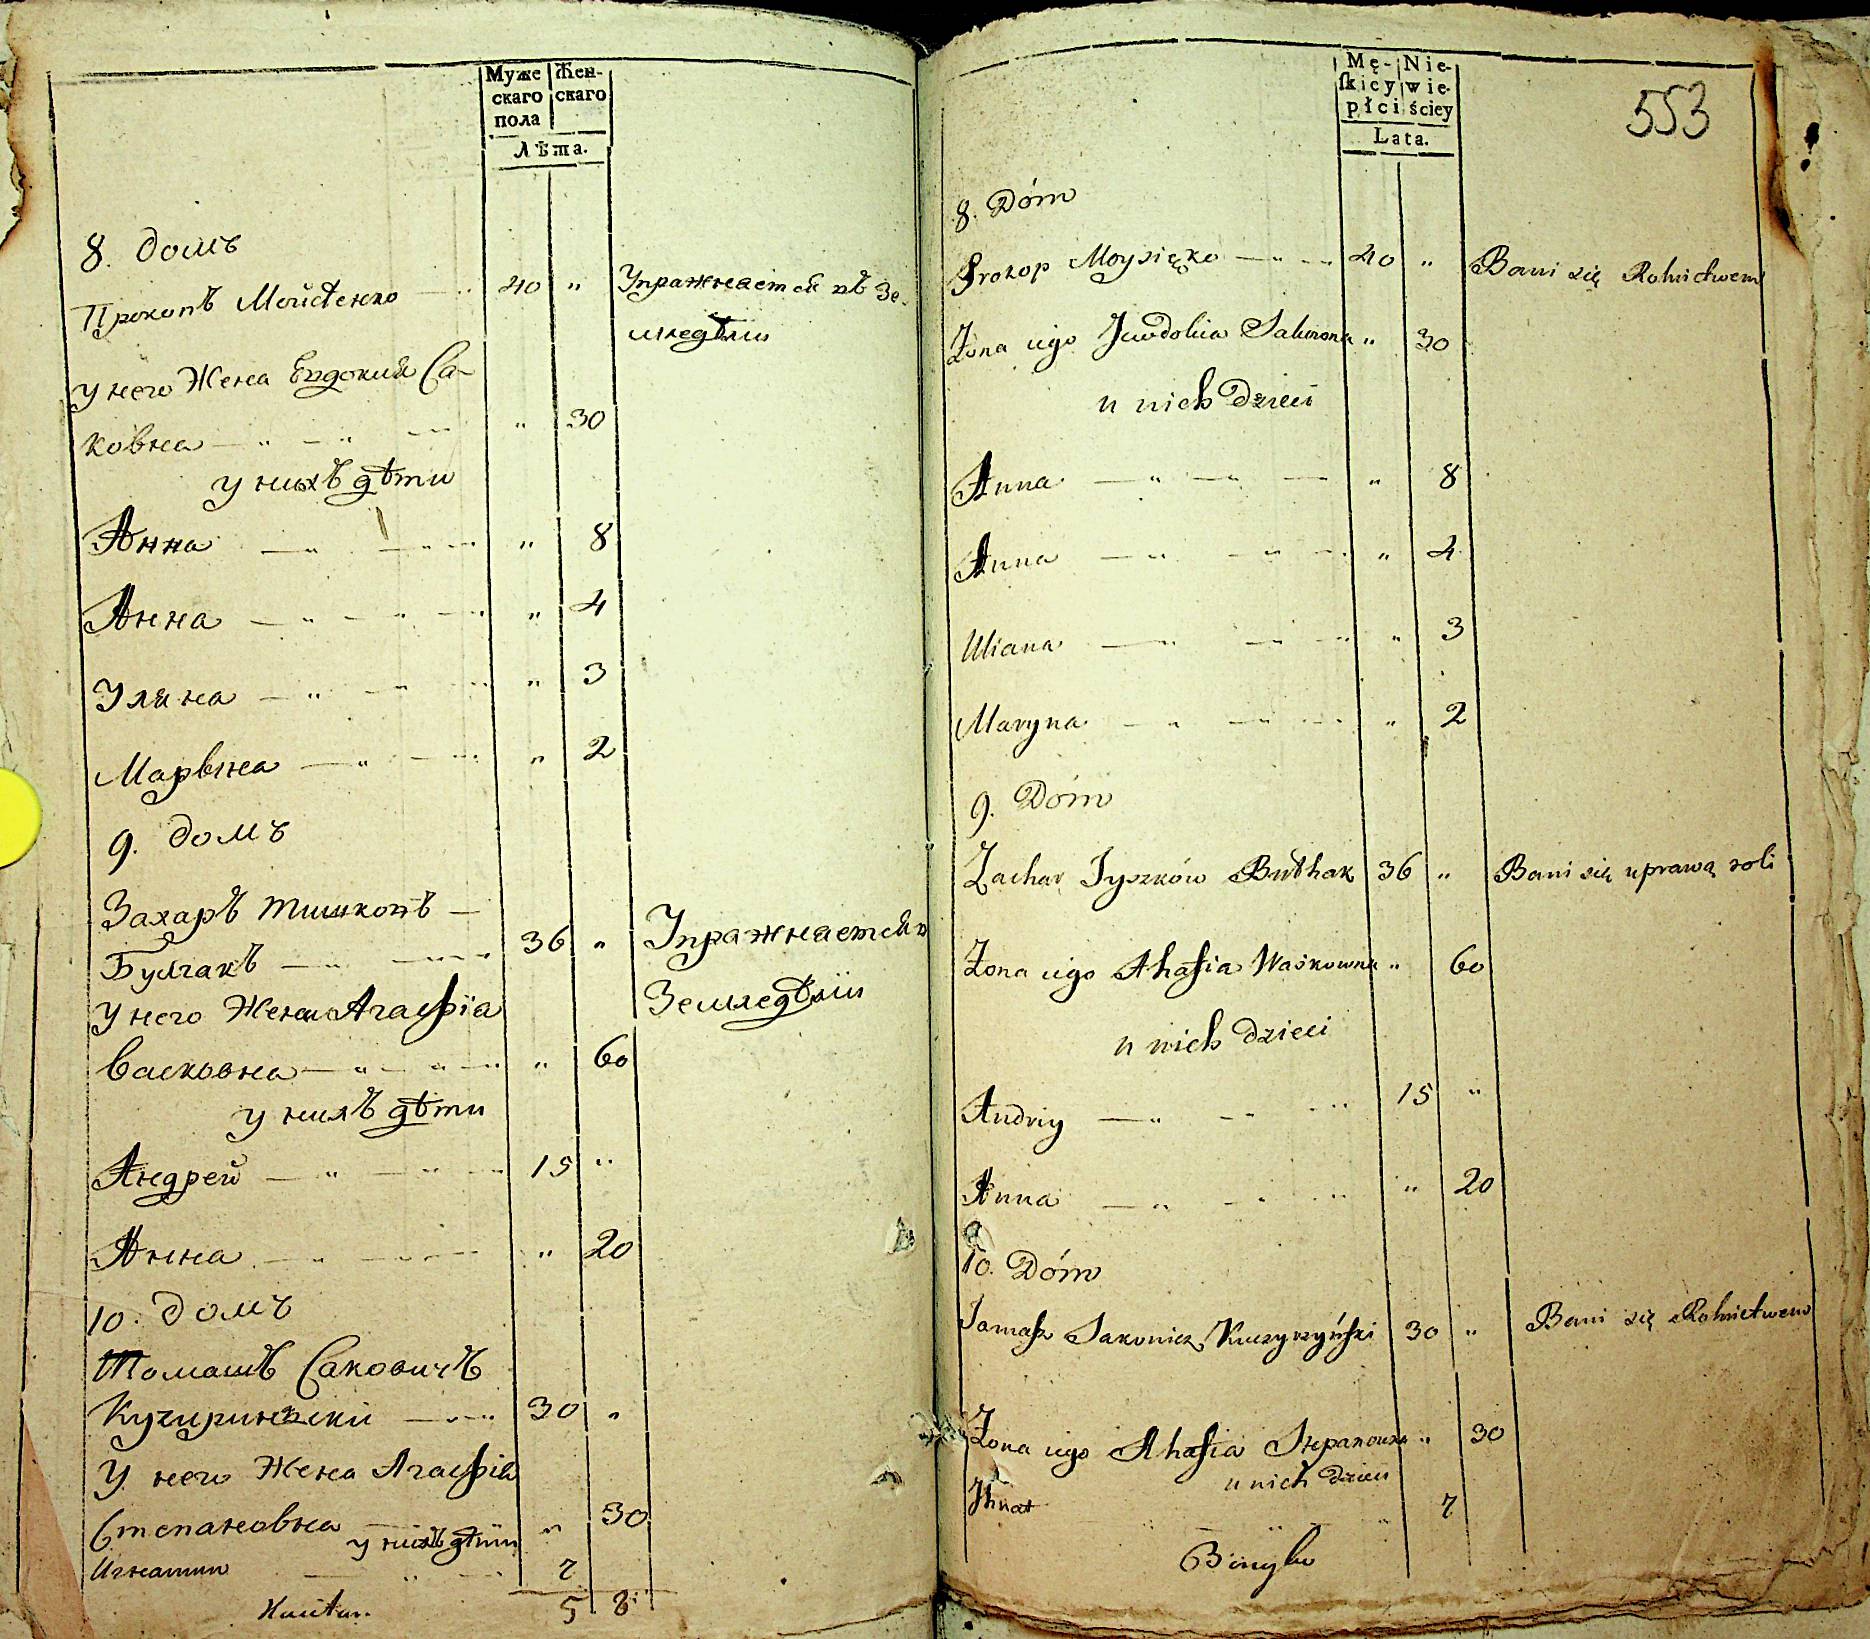 Муже Жен-
скаго скаго
пола
Лѣта.
8. домъ
Прокопъ Мойсѣенко 40 " Упражняется въ Зе-
мледѣлiи
у него Жена Евдокия Са-
ковна " 30
у нихъ дѣти
Анна " 8
Анна " 4
Уляна " 3
Марына " 2
9. домъ
Захаръ Тишковъ
Булгакъ 36 " Упражняется в
Земледѣлiи
у него Жена Агафiа
Васковна " 60
у нихъ дѣти
Андрей 15 "
Анна " 20
10. домъ
Томашъ Саковичъ
30 "
У него Жена Агафiя
Степановна " 30
у нихъ дѣти
7
5 8
Mę- Nie-
ſkiey wie-
płci ściey
Lata.
553
8. Dóm
Prokop Moysięko 40 " Bawi się Rolnictwem
Żona iego Jewdokia Sakowna " 30
u nich Dzieci
Anna " 8
Anna " 4
Uliana " 3
Maryna " 2
9. Dóm
Zachar Tyszków Bułhak 36 " Bawi się uprawą roli
Żona iego Ahafia Waśkowna " 60
u nich Dzieci
Andriy 15 "
Anna " 20
10. Dóm
Tomaſz Sakowicz 30 " Bawi się Rolnictwem
Żona iego Ahafia Stepanowna " 30
u nich Dzieci
Ihnat 7